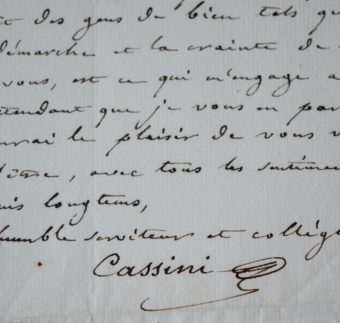 des gens de bien tels qu
démarche et la crainte de
vous, est ce qui m'engage a
ttendant que je vous en par
urai le plaisir de vous v
d'être, avec tous les sentime
uis longtems,
humble serviteur et collég
Cassini